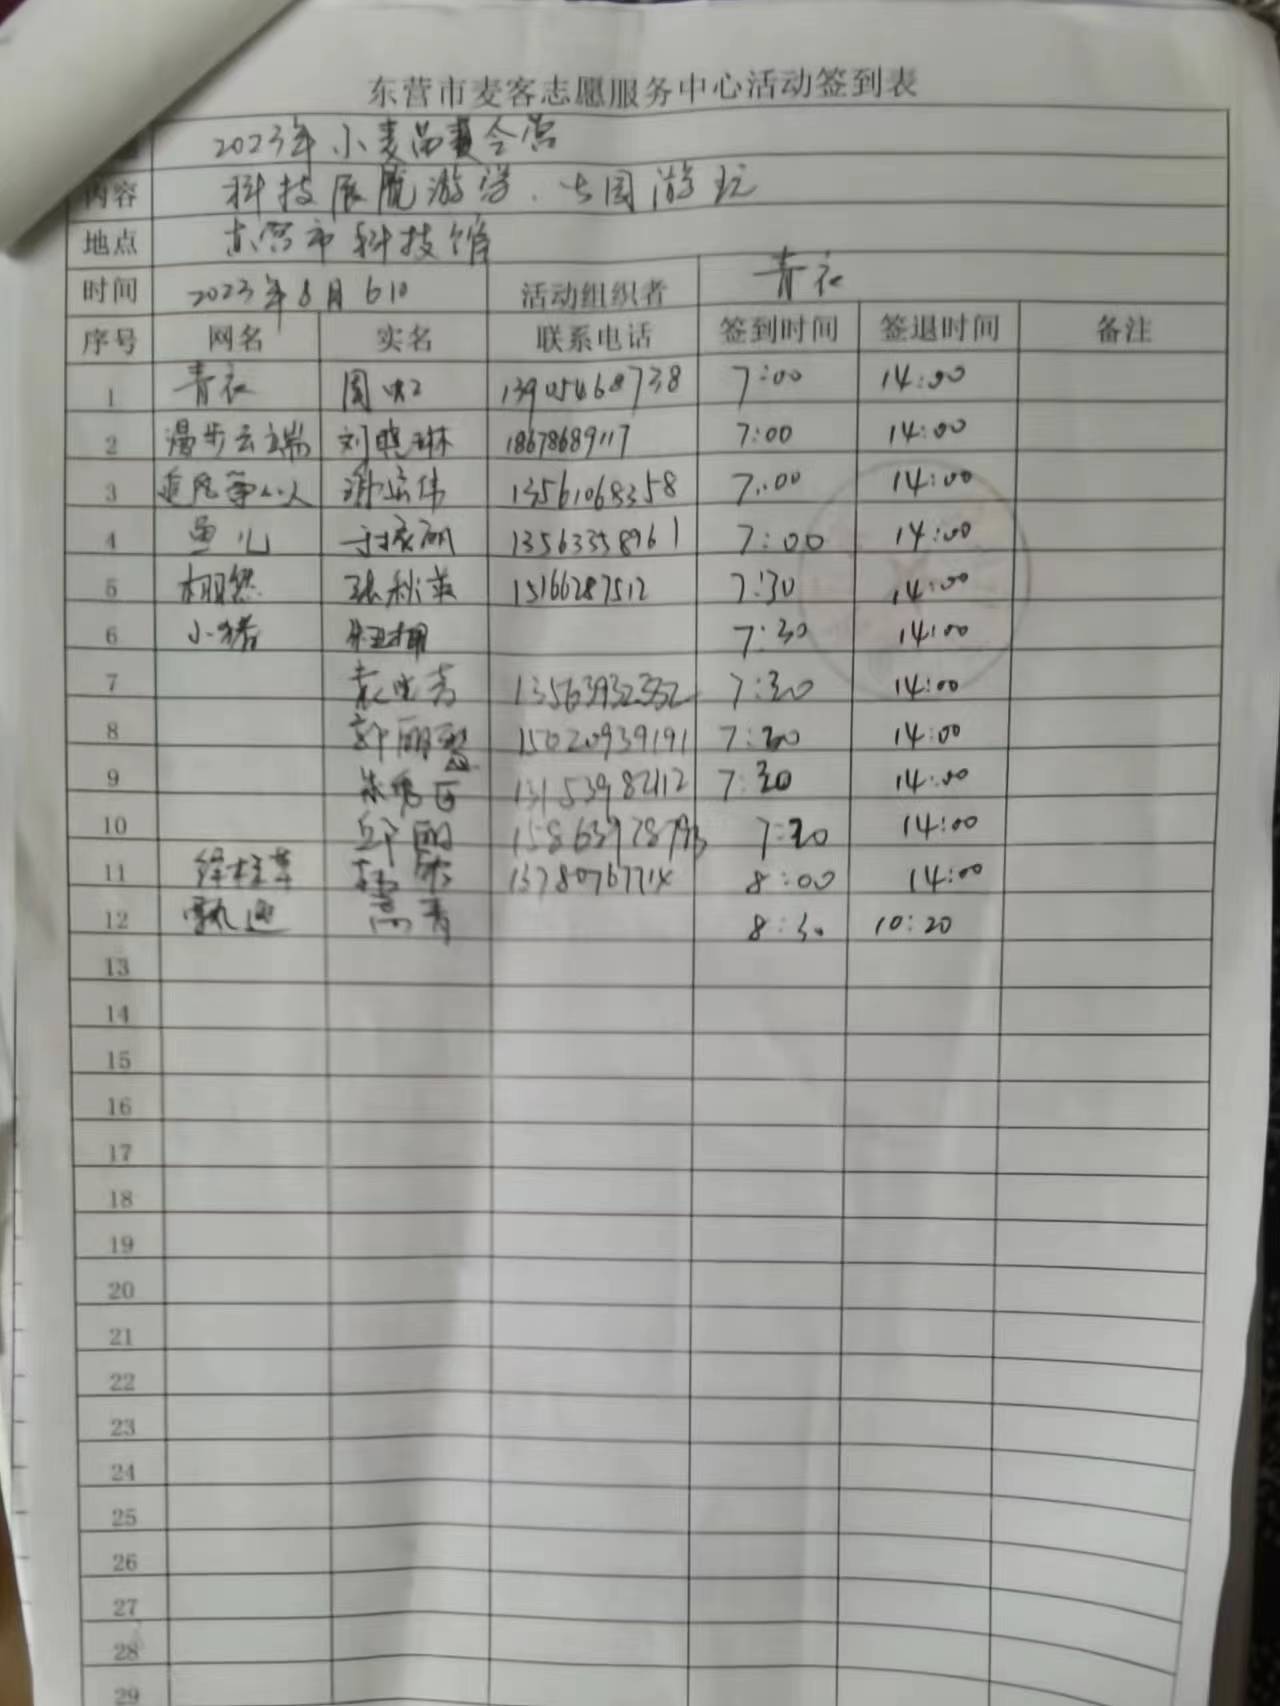 东营市麦客志愿服务中心活动签到表
2023年小麦苗夏令营
内容 科技展览游学、公园游玩
地点 东营市科技馆
时间 2023年8月6日 活动组织者 青衣
序号 网名 实名 联系电话 签到时间 签退时间 备注
1 青衣 周 13905468738 7:00 14:00
2 漫步云端 刘晓琳 18678689117 7:00 14:00
3 13561068358 7:00 14:00
4 鱼儿 13563358961 7:00 14:00
5 栩然 张秋英 15166287512 7:30 14:00
6 小猪 7:30 14:00
7 13563932332 7:30 14:00
8 郭丽 15020939191 7:30 14:00
9 朱 13153982112 7:30 14:00
10 丽 7:30 14:00
11 8:00 14:00
12 8:30 10:20
13
14
15
16
17
18
19
20
21
22
23
24
25
26
27
28
29